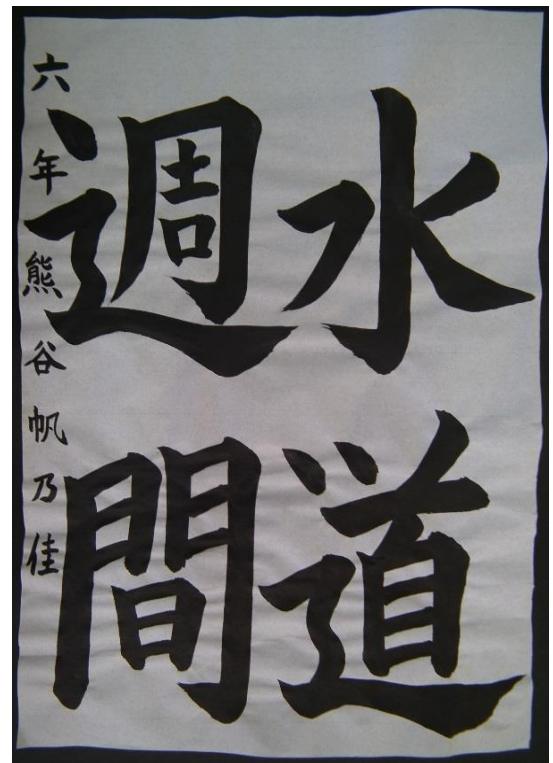 水道
週間
六年熊谷帆乃佳